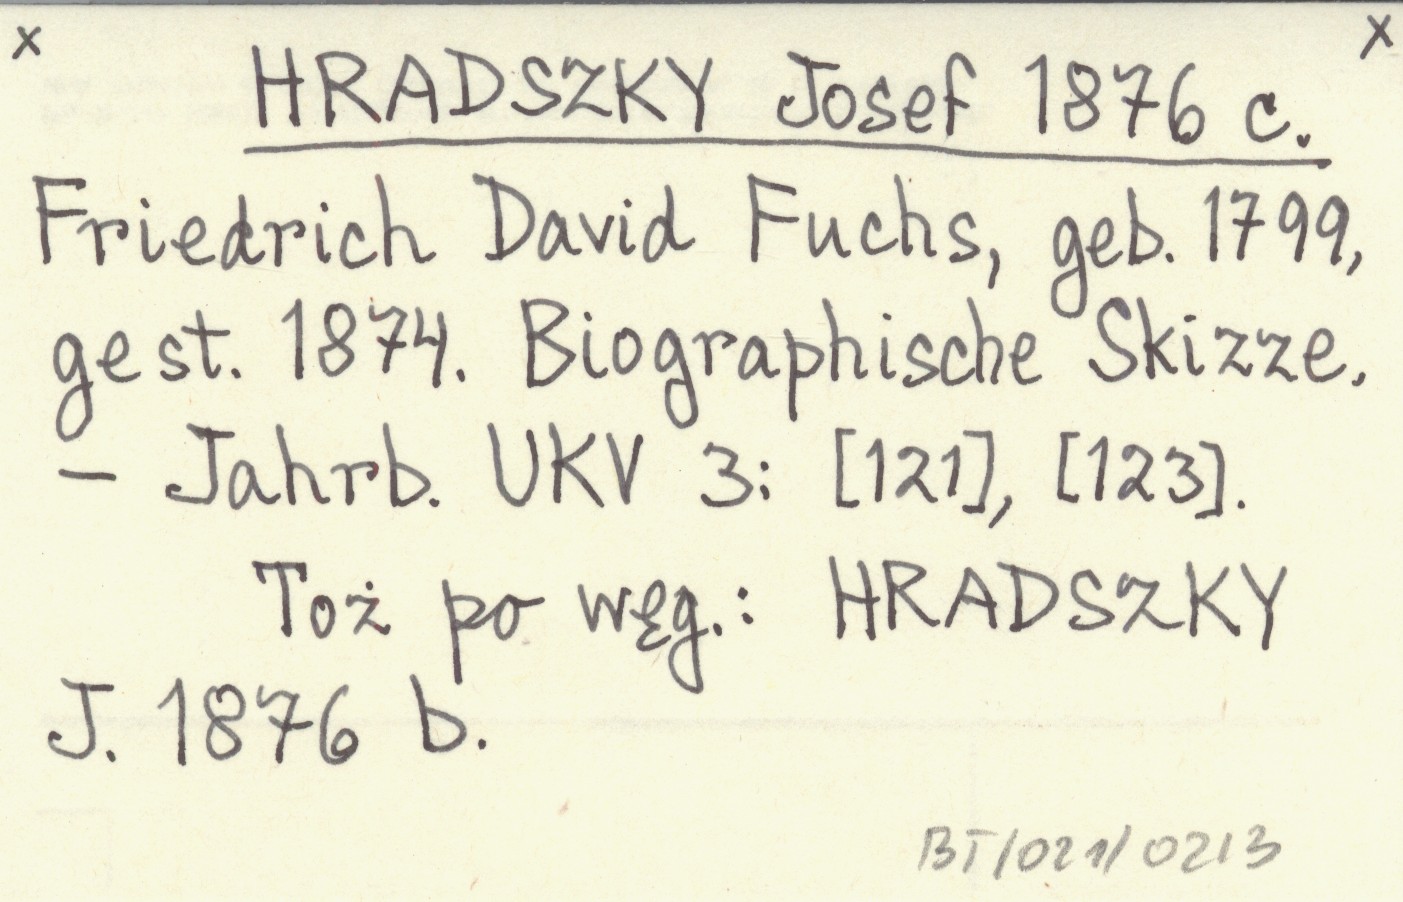 x x
HRADSZKY Josef 1876 c.
Friedrich David Fuchs, geb. 1799,
gest. 1874. Biographische Skizze.
– Jahrb. UKV 3: [121], [123].
Toż po węg.: HRADSZKY
J. 1876 b.
BT/021/0213